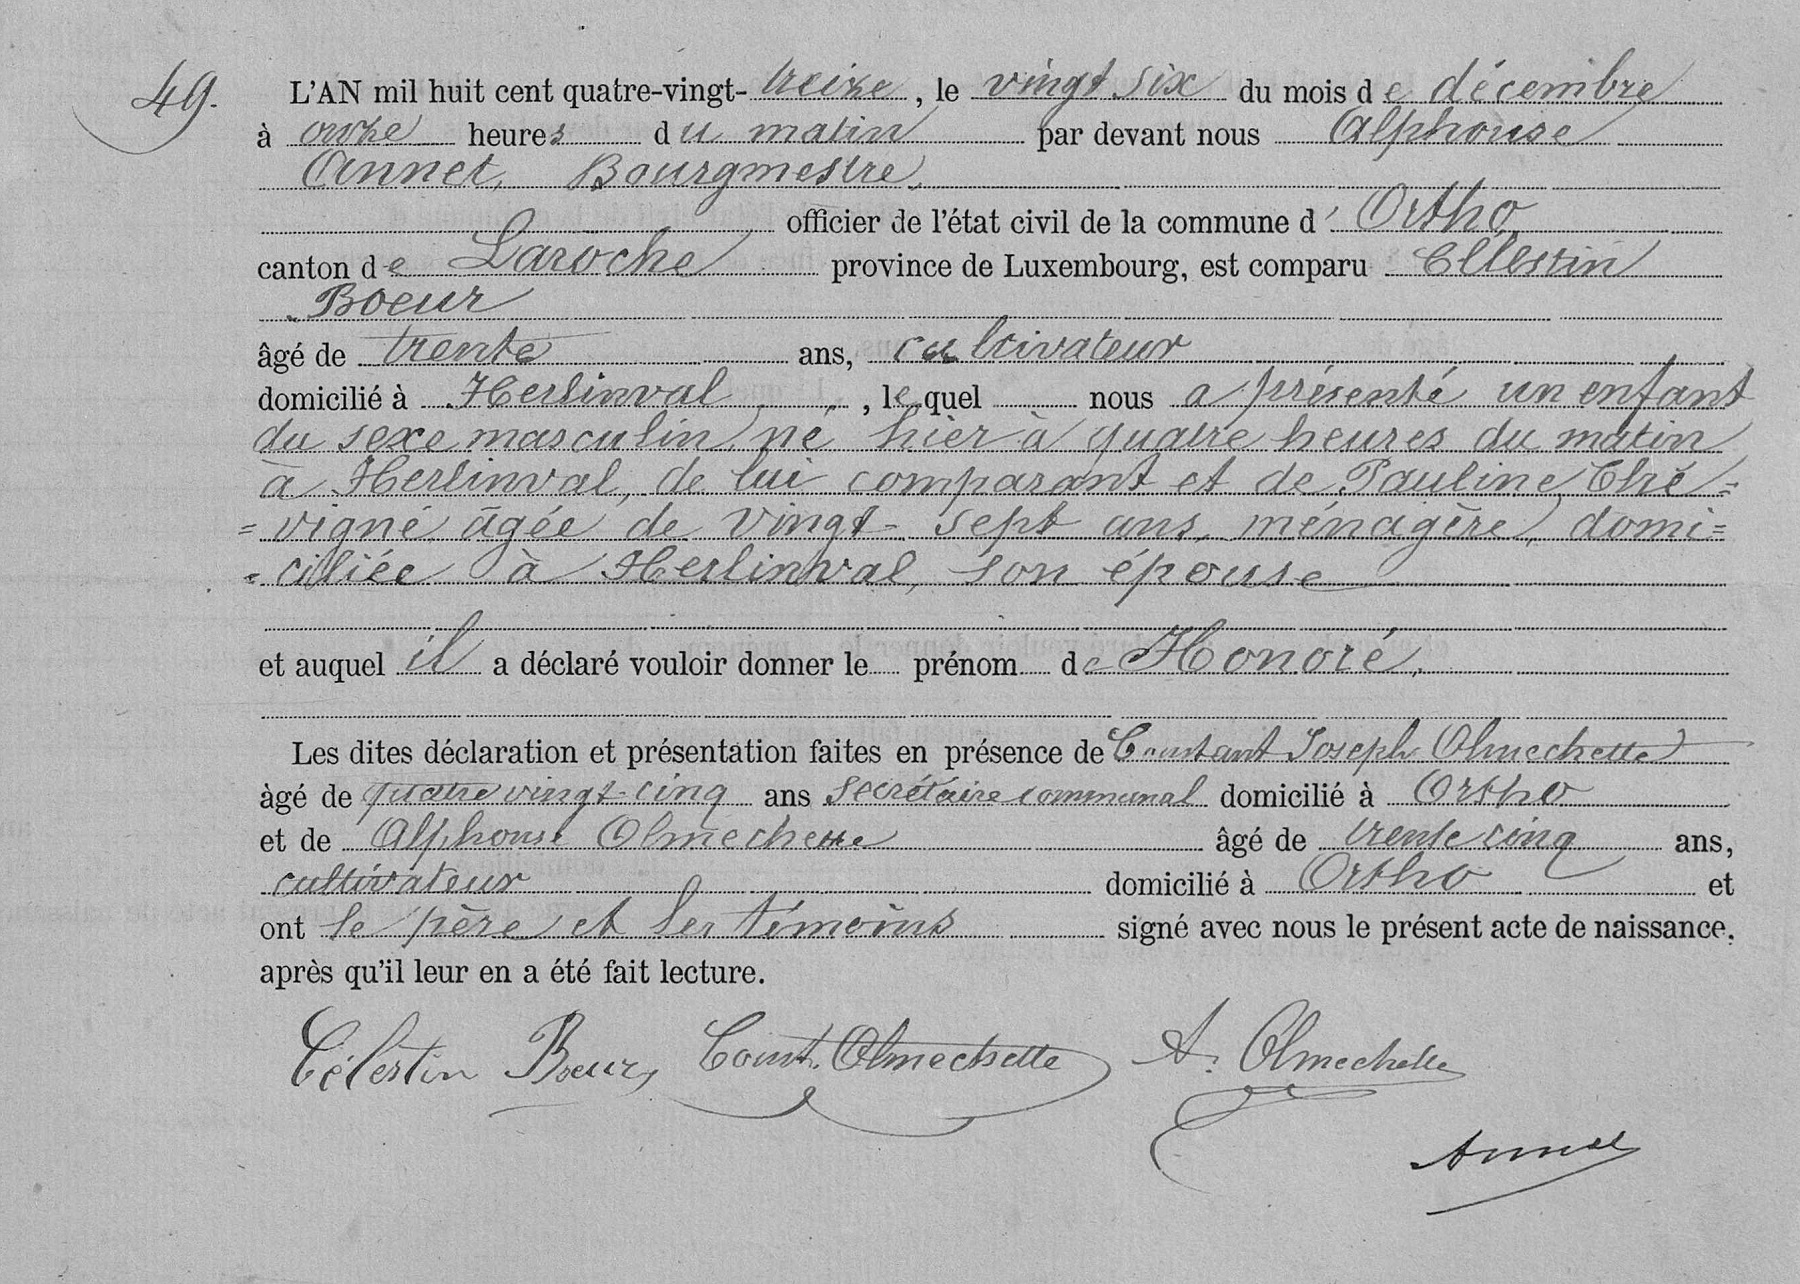 49.
L'AN mil huit cent quatre-vingt-treize, le vingt six du mois de décembre
à onze heures du matin par devant nous Alphonse
Annet, Bourgmestre,
officier de l'état civil de la commune d'Ortho
canton de Laroche province de Luxembourg, est comparu Célestin
Boeur
âgé de trente ans, cultivateur
domicilié à Herlinval, lequel nous a présenté un enfant
du sexe masculin, né hier à quatre heures du matin
à Herlinval, de lui comparant et de Pauline Thé=
=vigné âgée de vingt-sept ans, ménagère, domi=
=ciliée à Herlinval, son épouse
et auquel il a déclaré vouloir donner le prénom de Honoré,
Les dites déclaration et présentation faites en présence de Constant Joseph Olmechette
âgé de quatre vingt-cinq ans secrétaire communal domicilié à Ortho
et de Alphonse Olmechette âgé de trente cinq ans,
cultivateur domicilié à Ortho et
ont le père et les témoins signé avec nous le présent acte de naissance,
après qu'il leur en a été fait lecture.
Célestin Boeur, Const. Olmechette A. Olmechette
Annet